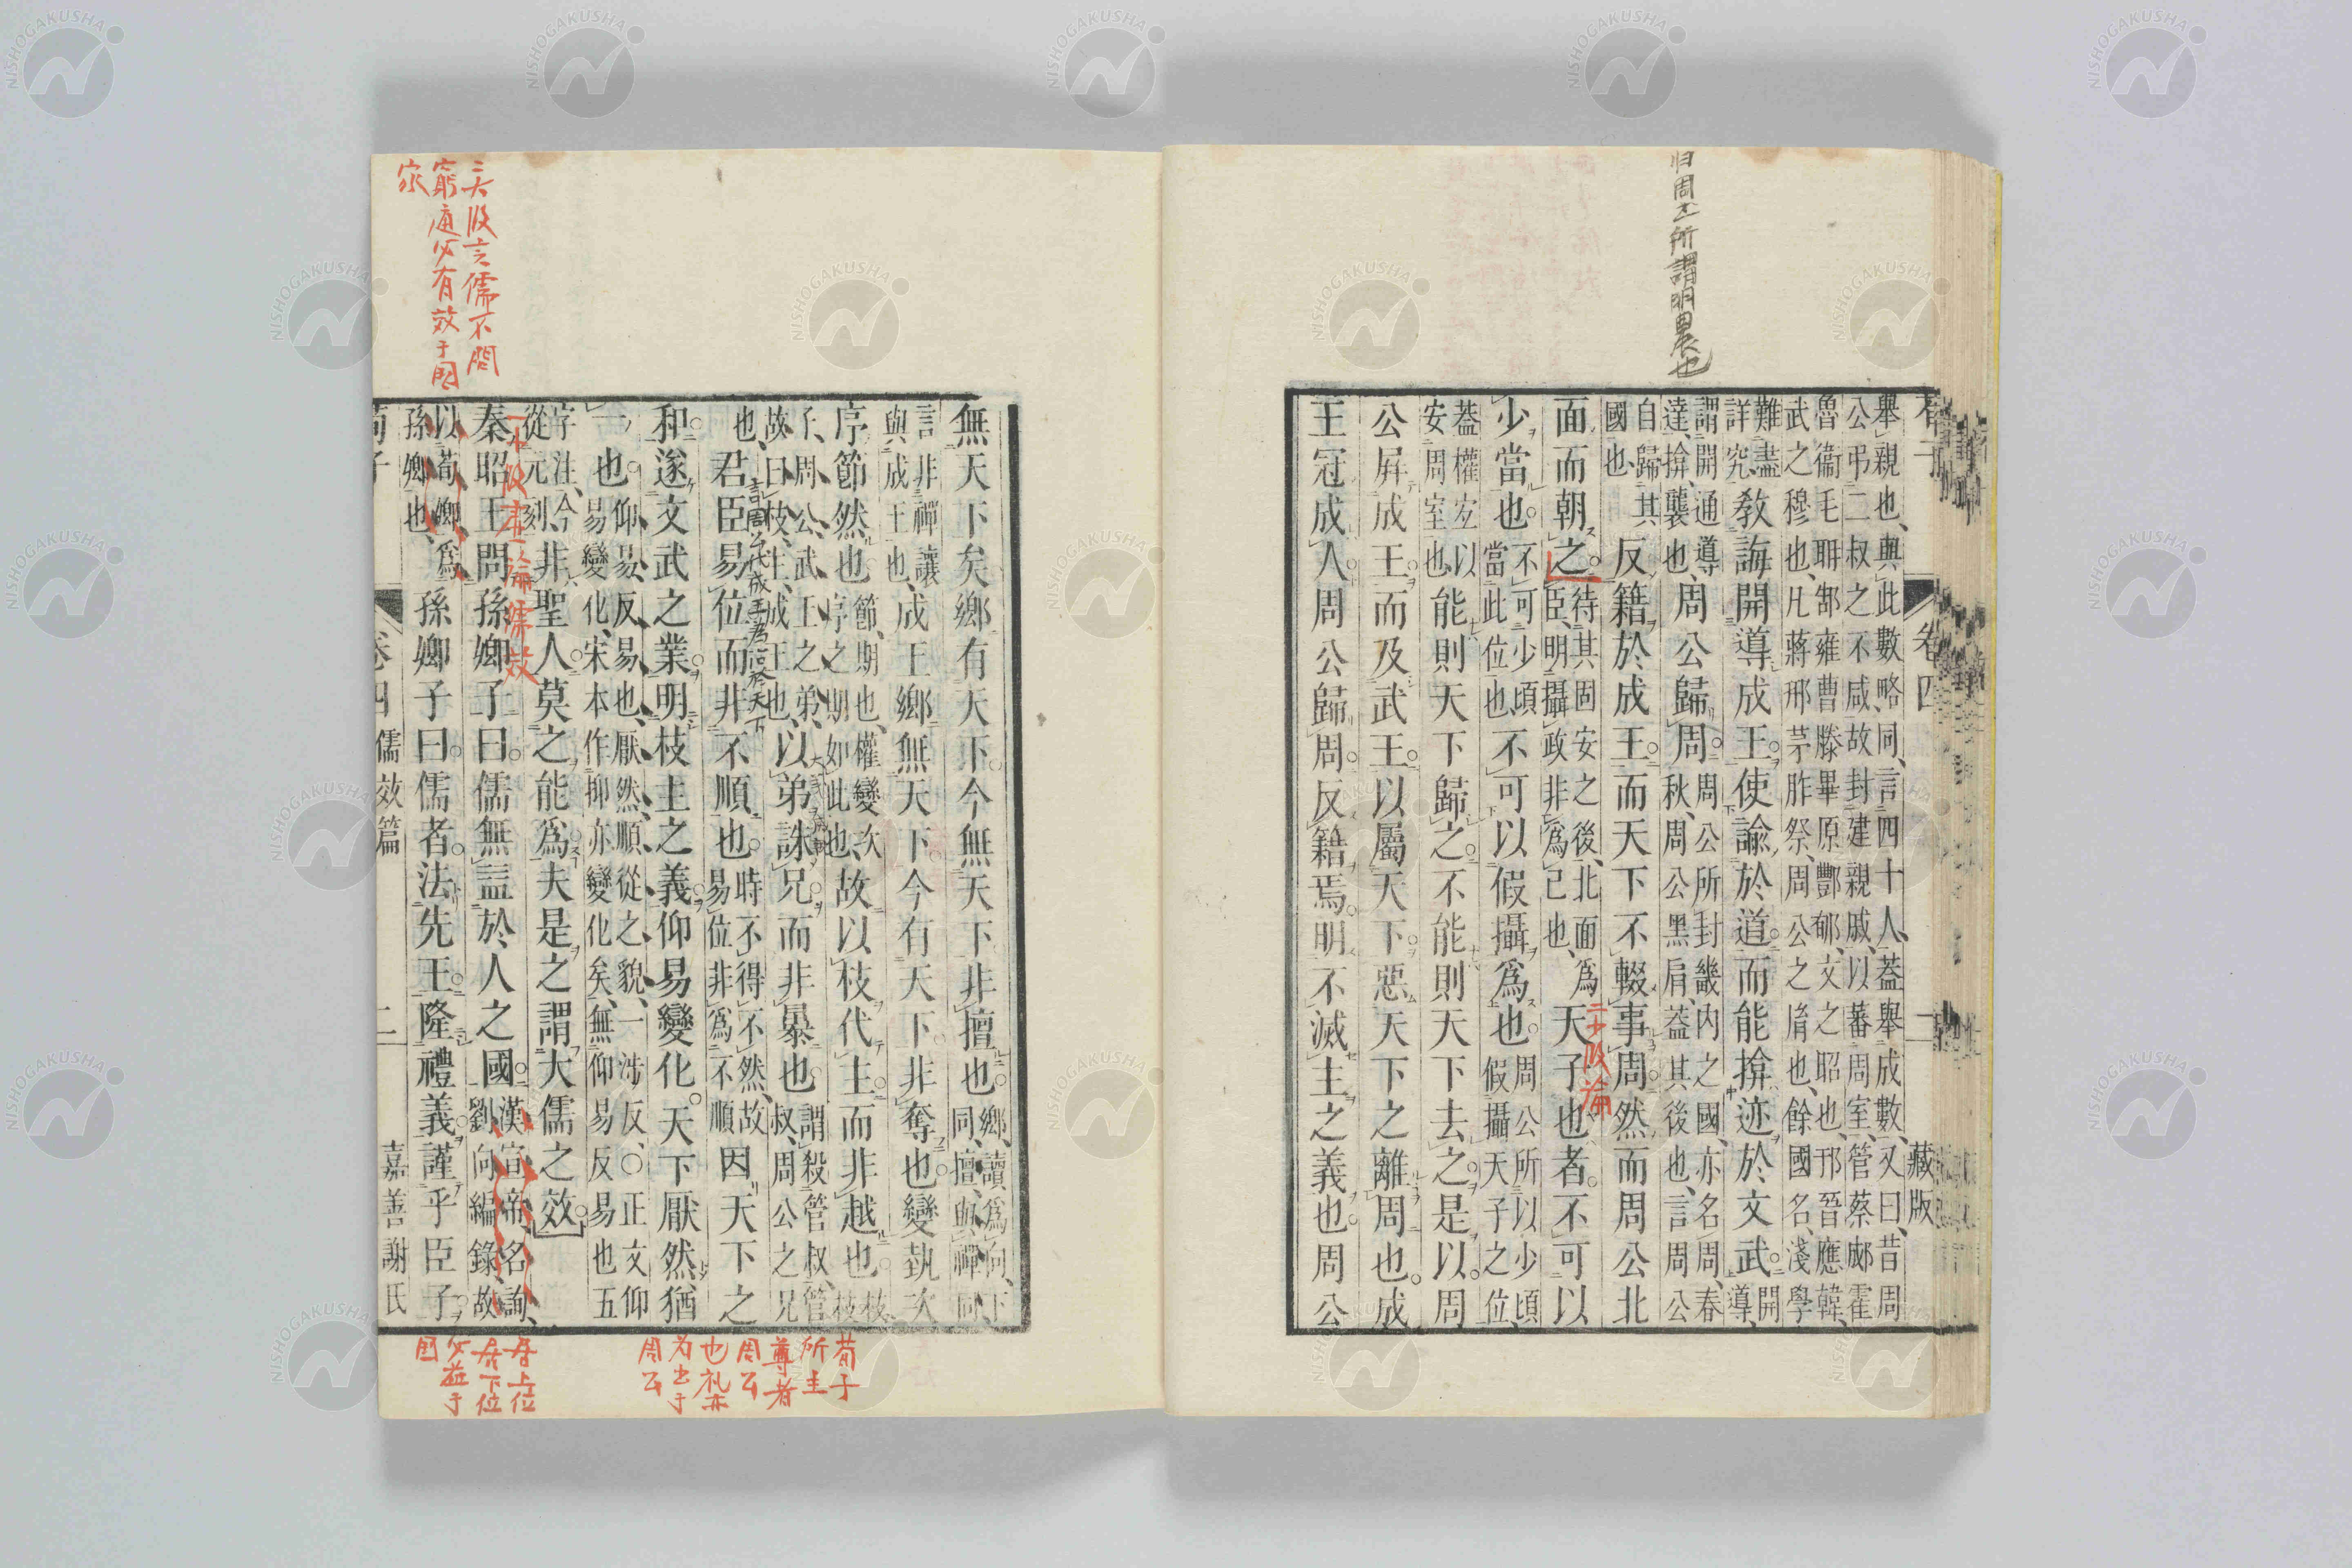 归周上所謂明農也
卷四
二
藏版
舉親也、與此數略同、言四十人、蓋舉成數、又曰、昔周
公弔二叔之不咸故封建親戚、以蕃周室、管蔡郕霍
魯衞毛聃郜雍曹滕畢原酆郇、文之昭也、邘晉應韓、
武之穆也、凡蔣邢茅胙祭、周公之胤也、餘國名、淺學
難盡
詳究、
教誨開導成王使諭於道而能揜迹於文武
開
導、
謂開通導
達、揜、襲也、
周公歸周
周公所封畿內之國、亦名周、春
秋、周公黑肩、蓋其後也、言周公
自歸其
國也、
反籍於成王而天下不輟事周然而周公北
面而朝之
待其固安之後、北面爲
臣、明攝政非爲己也、
天子也者不可以
二十段論
少當也
不可少頃
當此位也、
不可以假攝爲也
周公所以少頃
假攝天子之位、
蓋權宜以
安周室也
能則天下歸之不能則天下去之是以周
公屛成王而及武王以屬天下惡天下之離周也成
王冠成人周公歸周反籍焉明不滅主之義也周公
無天下矣鄉有天下今無天下非擅也
鄉、讀爲向、下
同、擅與禪同、
言非禪讓
與成王也、
成王鄉無天下今有天下非奪也變埶次
序節然也
節、期也、權變次
序之期如此也、
故以枝代主而非越也
枝、枝
子、周公、武王之弟、
故曰枝、主、成王也、
以弟誅兄而非暴也
謂殺管叔、管
叔、周公之兄
也、
君臣易位而非不順也
時不得不然、故
易位非爲不順
因天下之
言周公代成王爲 於天下
和遂文武之業明枝主之義仰易變化天下厭然猶
一也
仰易、反易也、厭然、順從之貌、一涉反、○正文仰
易變化、宋本作抑亦變化矣、無仰易反易也五
字注、今
從元刻、
非聖人莫之能爲夫是之謂大儒之效
秦昭王問孫卿子曰儒無益於人之國
漢宣帝、名詢、
劉向編錄、故
以荀卿、爲
孫卿也、
孫卿子曰儒者法先王隆禮義謹乎臣子
荀子
卷四
儒效篇
二
嘉善謝氏
三大段言儒不問
窮通必有效于國
家
荀子
所主
尊者
周公
也礼亦
为出于
周公
居上位
居下位
必益于
国